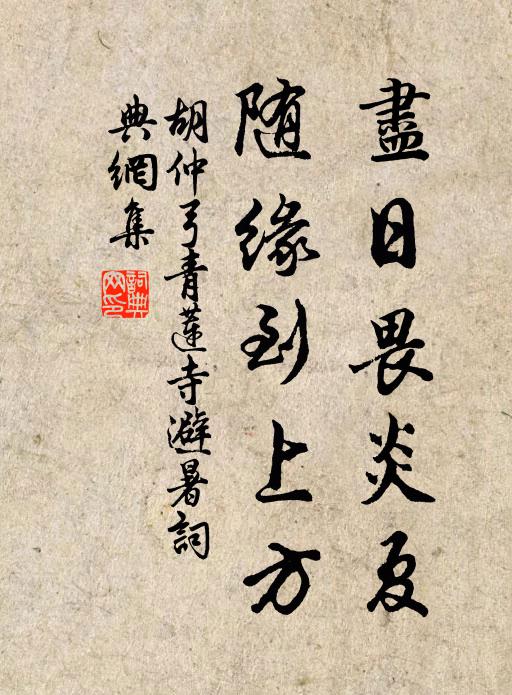 盡日畏炎夏
随缘到上方
胡仲弓青蓮寺避暑詞
典網集
詞典网印